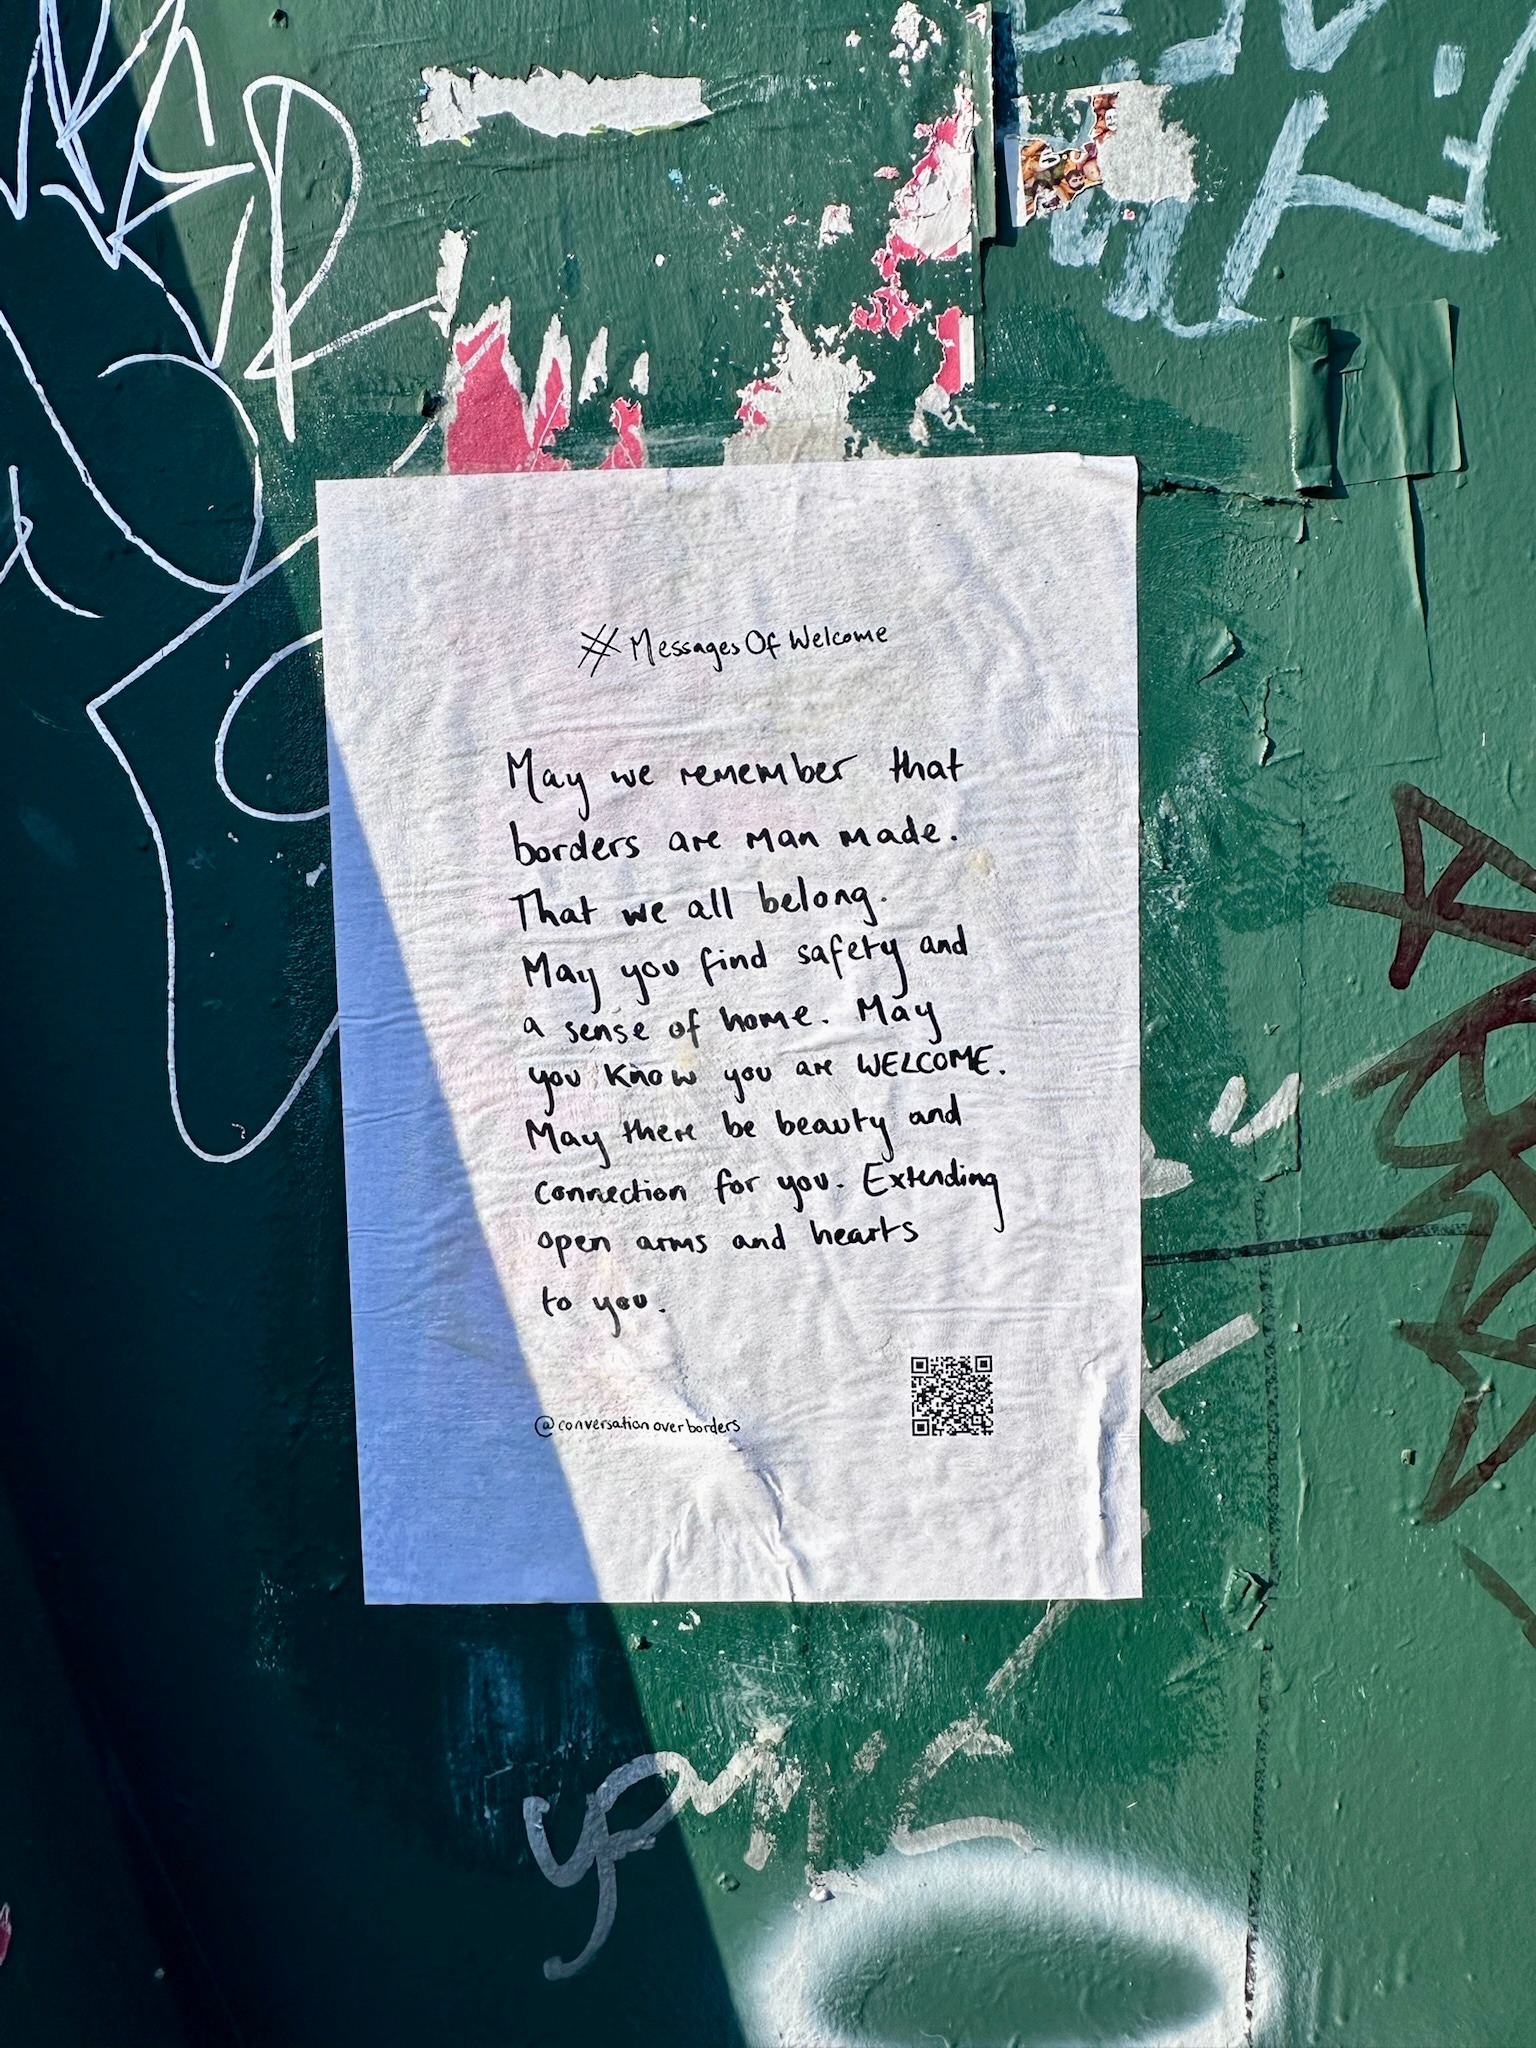 #MessagesOfWelcome
May we remember that
borders are man made.
That we all belong.
May you find safety and
a sense of home. May
you know you are WELCOME.
May there be beauty and
connection for you. Extending
open arms and hearts
to you.
@conversationoverborders